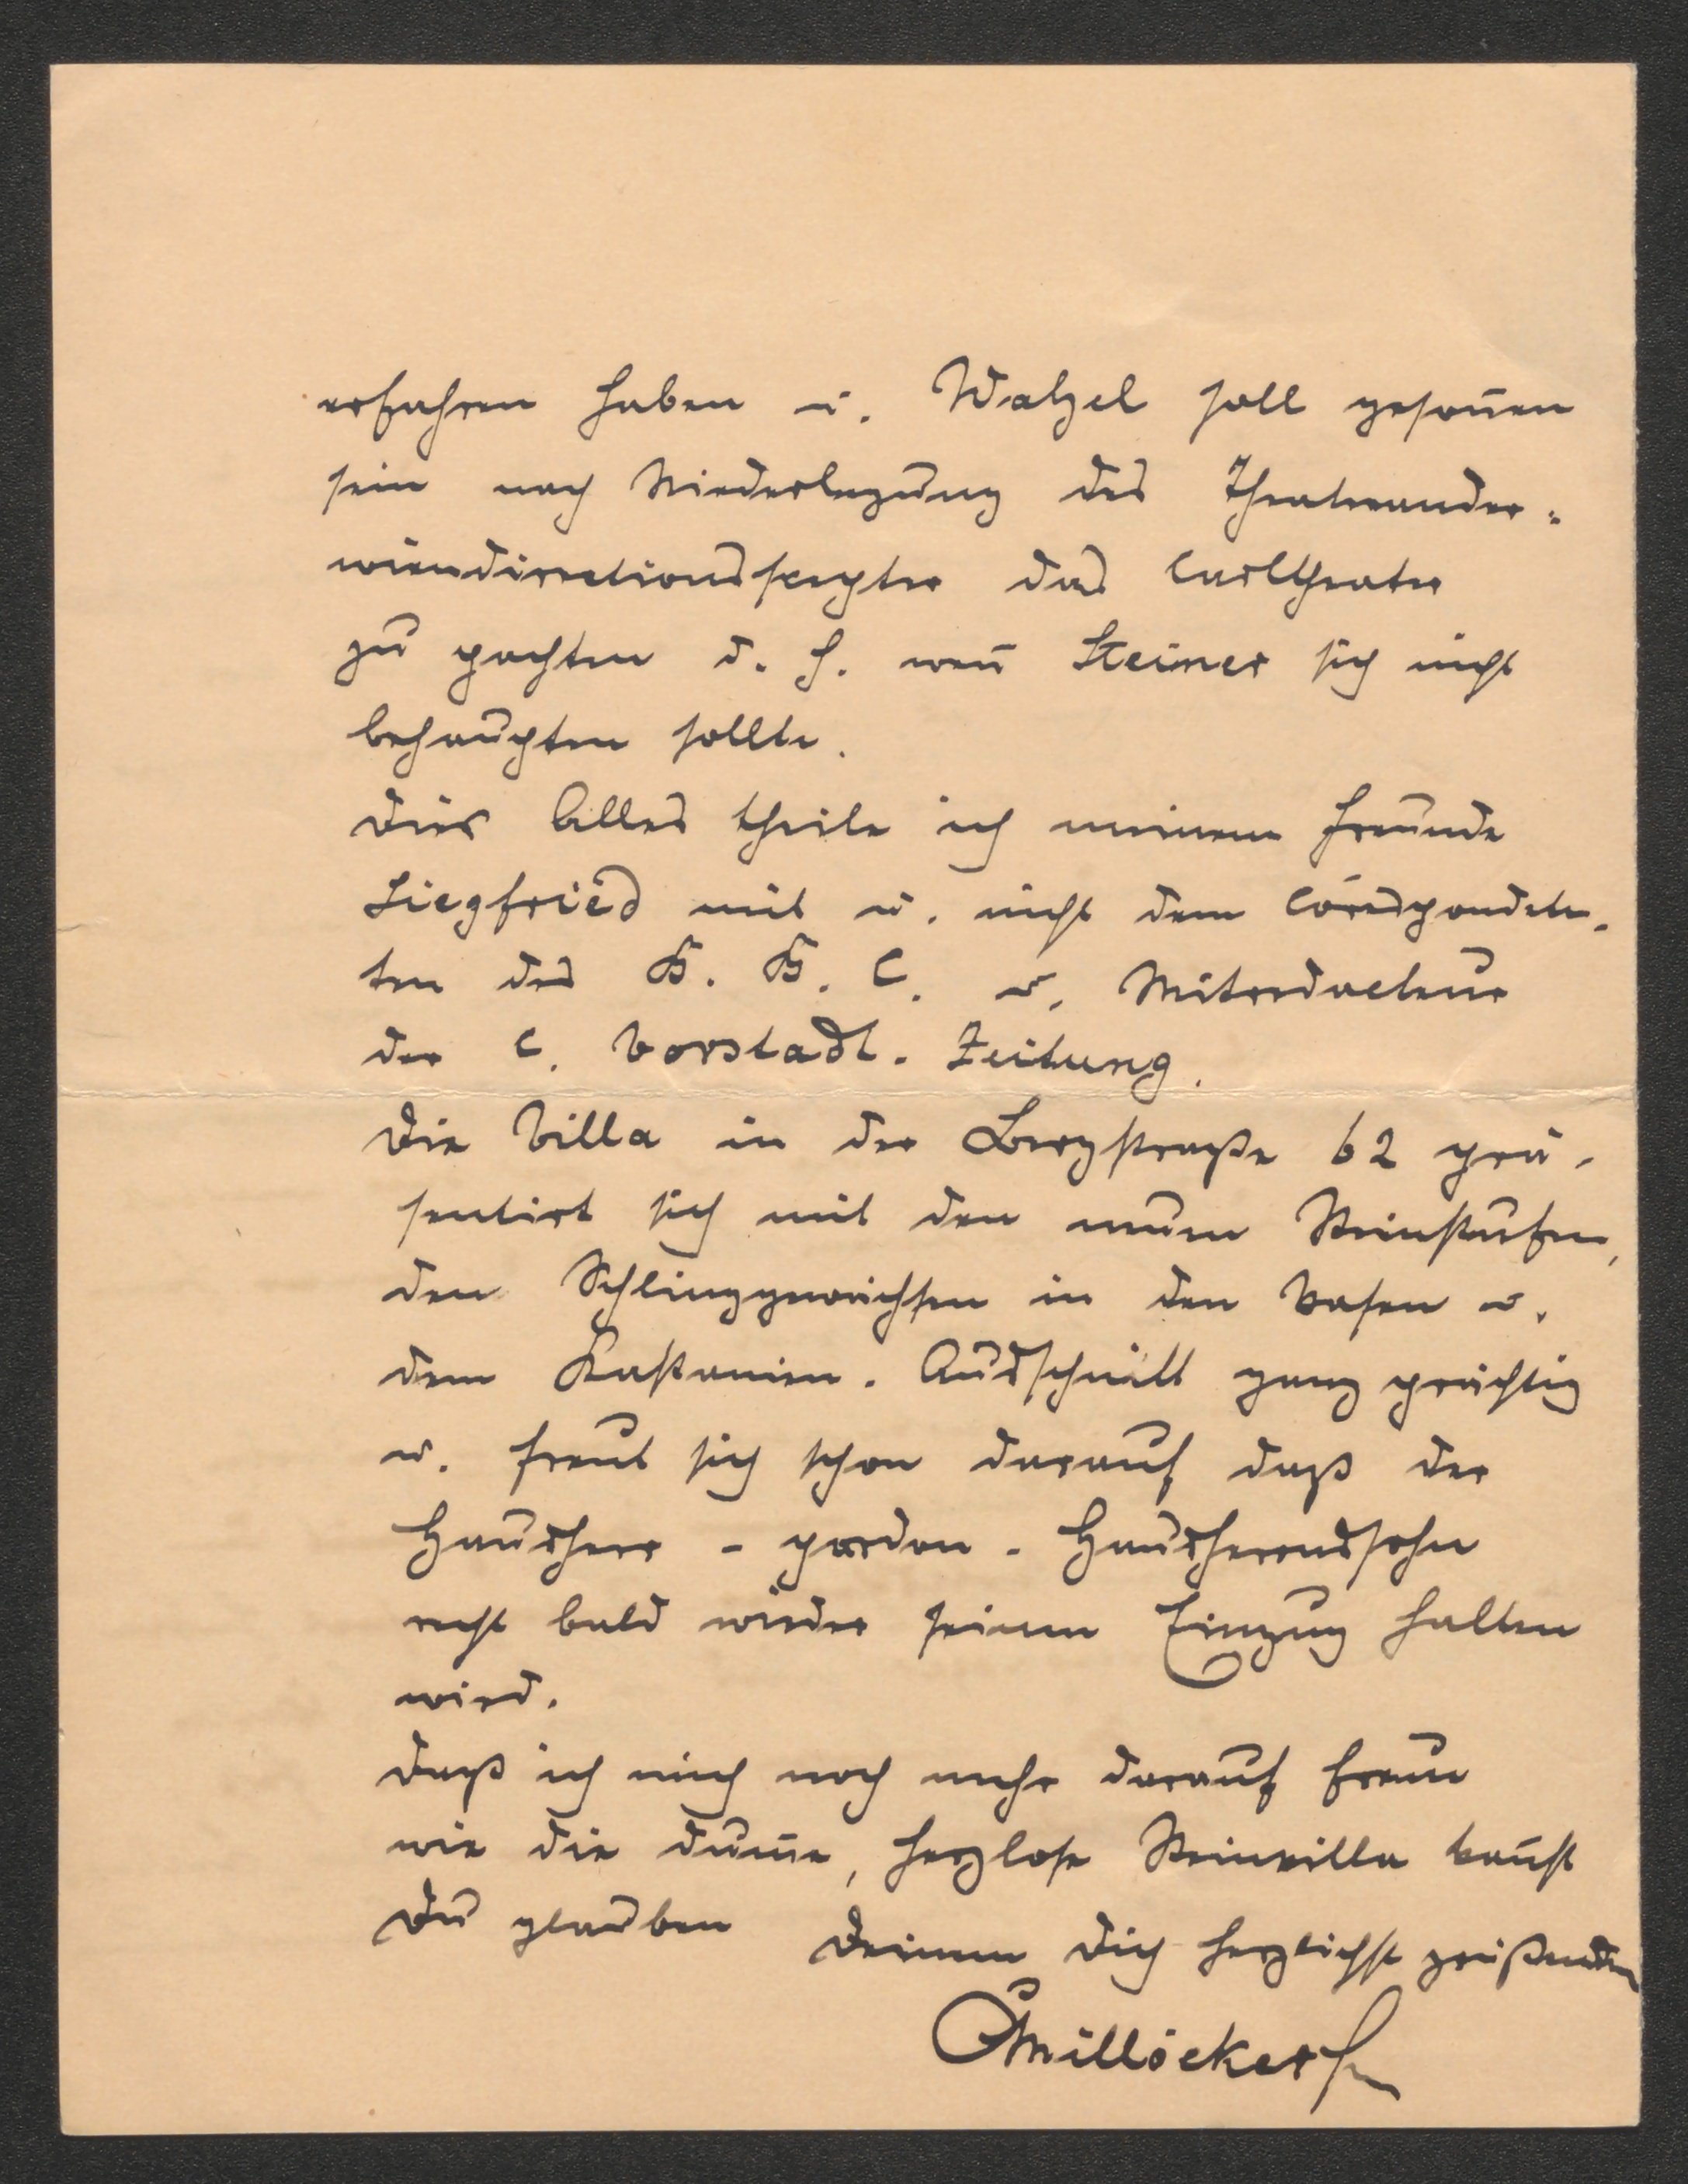 erfahren haben u. Walzel soll gesoñen
sein nach Niederlegung des Theaterander-
wiendirectionsscepter das Carltheater
zu pachten d. h. weñ Steiner sich nicht
behaupten sollte.
Dies Alles theile ich meinem Freunde
Siegfried mit u. nicht dem
ten des B. B. C. u. Mitredacteur
der C. Vorstadt. Zeitung.
Die Villa in der Bergstraße 62 prä-
sentirt sich mit den neuen Steinstufen,
den Schlinggewächsen in den Vasen u.
dem Kastanien-Ausschnitt ganz prächtig
u. freut sich schon darauf daß der
Hausherr - pardon - Hausherrnssohn
recht bald wieder seinen Einzug halten
wird.
Daß ich mich noch mehr darauf freue
wie die dum̄e, herzlose Steinvilla kañst
Du glauben Deinem Dich herzlichst grüßenden
CMillöcker